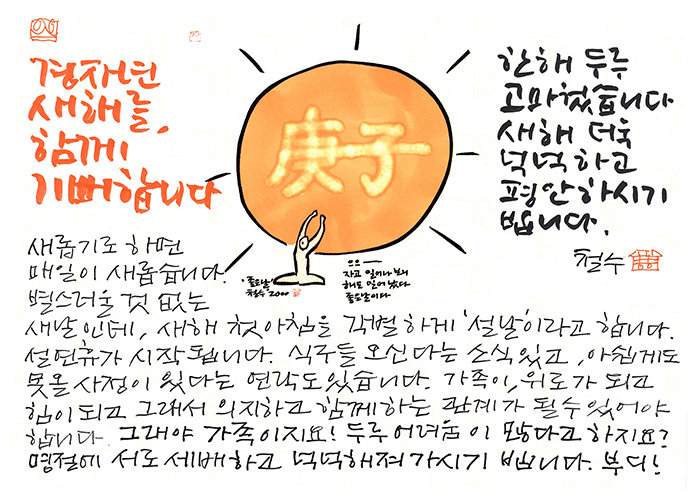 경자년
새해를,
함께
기뻐합니다
庚子
한해 두루
고마웠습니다
새해 더욱
넉넉하고
평안하시기
빕니다.
철수
'좋은날'
철수 2000
으으 —
자고 일어나 보니
해도 일어 났다
좋은날이다
새롭기로 하면
매일이 새롭습니다.
별스러울 것 없는
새날인데, 새해 첫아침을 각별하게 '설날'이라고 합니다.
설연휴가 시작 됩니다. 식구들 오신다는 소식있고, 아쉽게도
못올 사정이 있다는 연락도있습니다. 가족이, 위로가 되고
힘이되고 그래서 의지하고 함께하는 관계가 될수있어야
합니다. 그래야 가족이지요! 두루 어려움이 많다고 하지요?
명절에 서로 세배하고 넉넉해져 가시기 빕니다. 부디!